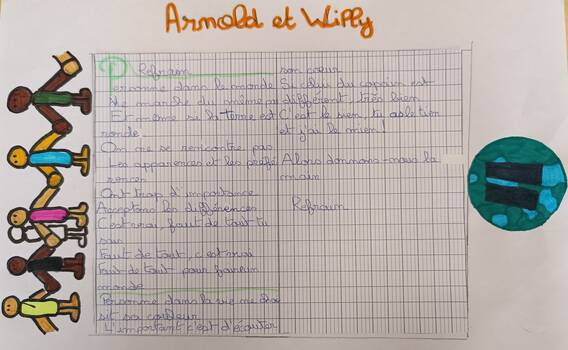 Arnold et Willy
Refrain
Personne dans le monde
Ne marche du même pas
Et même si la terre est
ronde
On ne se rencontre pas
Les apparences et les préfé
rences
Ont trop d'importance
Acceptons les différences
C'est vrai, faut de tout tu
sais
Faut de tout, c'est vrai
Faut de tout pour faire un
monde
Personne dans la vie ne choi
sit sa couleur
L'important c'est d'écouter
son cœur
Si celui du copain est
différent, très bien
C'est le sien, tu as le tien
et j'ai le mien!
Alors donnons-nous la
main
Refrain